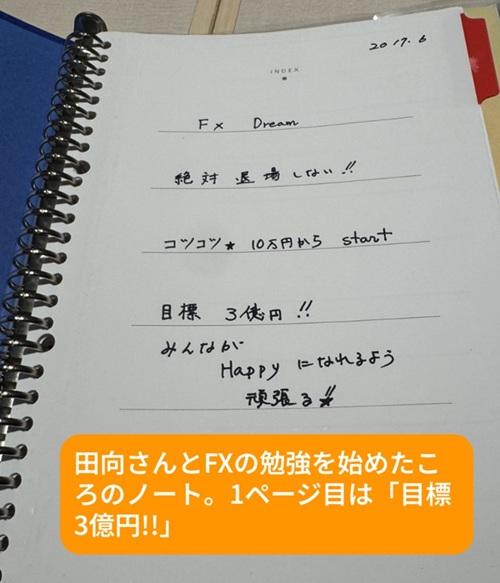 2017.6
INDEX
Fx Dream
絶対退場しない!!
コツコツ★ 10万円から start
目標 3億円!!
みんなが
Happyになれるよう
頑張る!!
田向さんとFXの勉強を始めたこ
ろのノート。1ページ目は「目標
3億円!!」